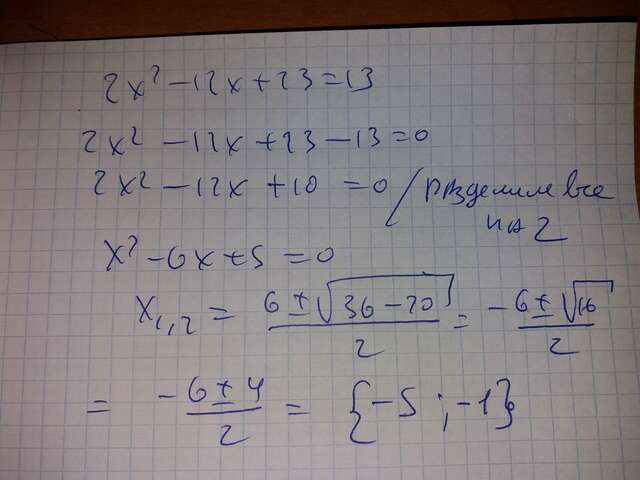 2x² - 12x + 23 = 13
2x² - 12x + 23 - 13 = 0
2x² - 12x + 10 = 0 / разделим все
на 2
x² - 6x + 5 = 0
x₁,₂ = (6 ± √(36 - 20)) / 2 = (-6 ± √16) / 2
= (-6 ± 4) / 2 = {-5; -1}